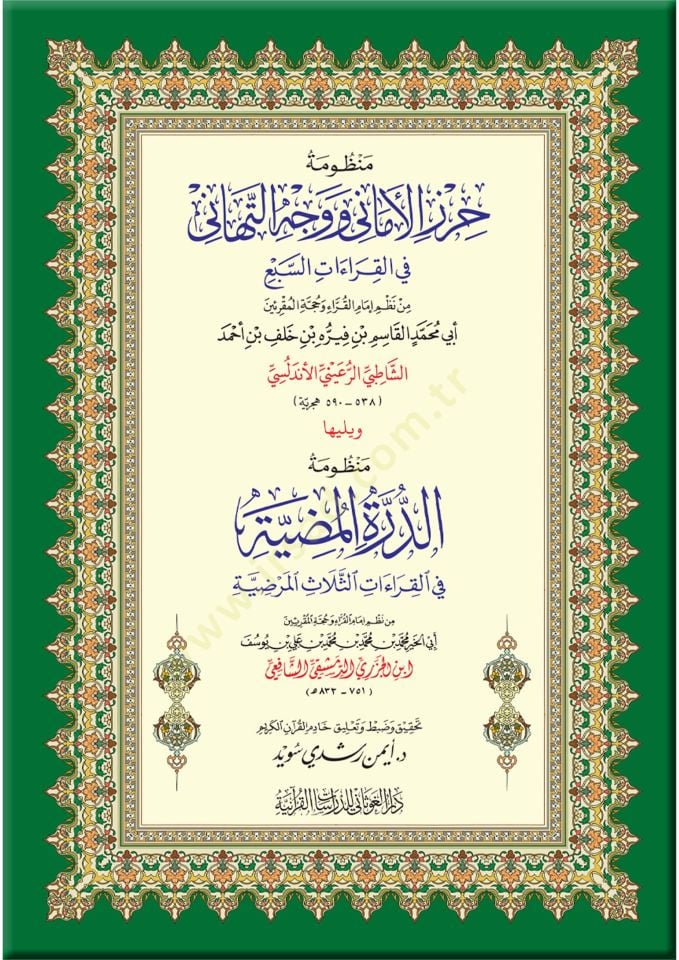 مَنْظُومَةُ
حِرْزِ الْأَمَانِي وَوَجْهِ التَّهَانِي
فِي القِرَاءَاتِ السَّبْعِ
مِنْ نَظْمِ إِمَامِ القُرَّاءِ وَحُجَّةِ المُقْرِئِينَ
أَبِي مُحَمَّدٍ القَاسِمِ بْنِ فِيرُّه بْنِ خَلَفِ بْنِ أَحْمَدَ
الشَّاطِبِيِّ الرُّعَيْنِيِّ الأَنْدَلُسِيِّ
(٥٣٨ – ٥٩٠ هجرية)
ويليها
مَنْظُومَةُ
الدُّرَّةِ المُضِيَّةِ
فِي القِرَاءَاتِ الثَّلَاثِ المَرْضِيَّةِ
مِن نَظْمِ إِمَامِ القُرَّاءِ وَحُجَّةِ المُقْرِئِينَ
أَبِي الخَيْرِ مُحَمَّدِ بْنِ مُحَمَّدِ بْنِ مُحَمَّدِ بْنِ عَلِيِّ بْنِ يُوسُفَ
ابْنِ الجَزَرِيِّ الدِّمَشْقِيِّ الشَّافِعِيِّ
(٧٥١ – ٨٣٣ هـ)
تَحْقِيق وَضَبْط وَتَعْلِيق خَادِمِ القُرْآنِ الكَرِيمِ
د. أيمن رشدي سُوَيد
دَارُ الغَوْثَانِي لِلدِّرَاسَاتِ القُرْآنِيَّةِ